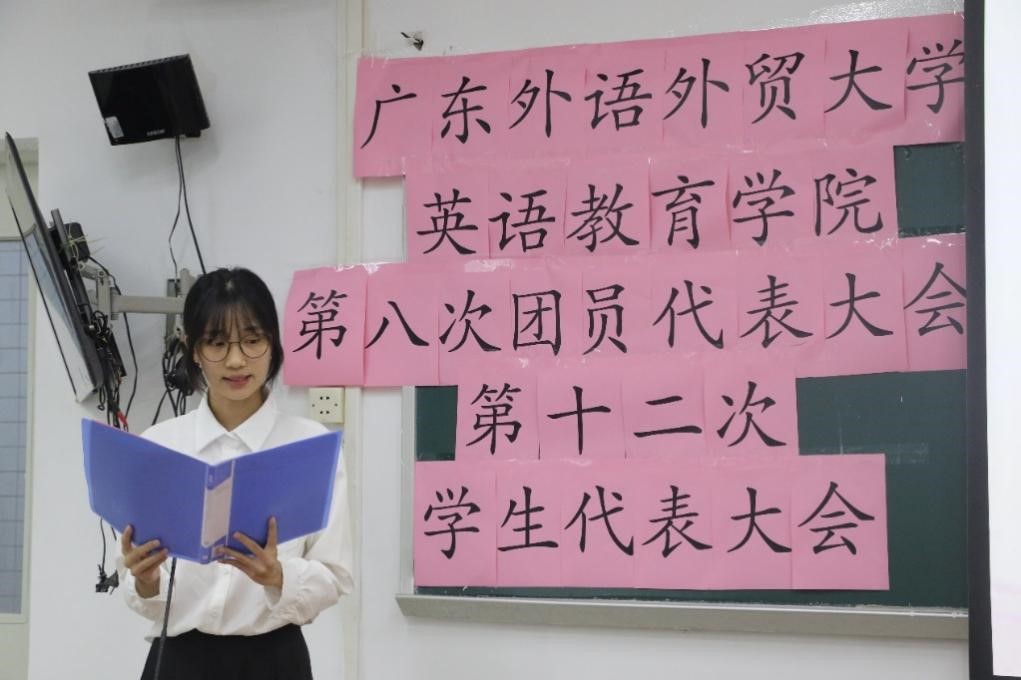 广东外语外贸大学
英语教育学院
第八次团员代表大会
第十二次
学生代表大会